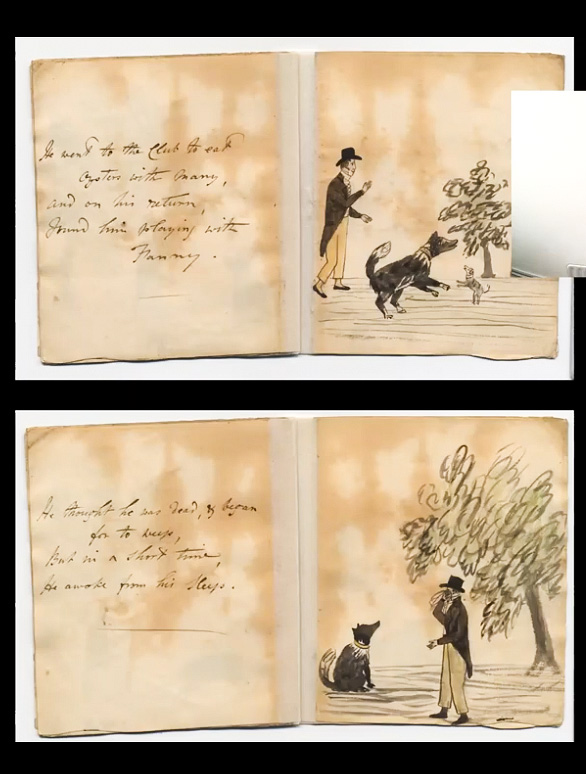 He went to the Club to eat
oysters with many,
and on his return,
found him playing with
Fanny.
He thought he was dead, & began
for to weep,
But in a short time,
He awoke from his sleep.